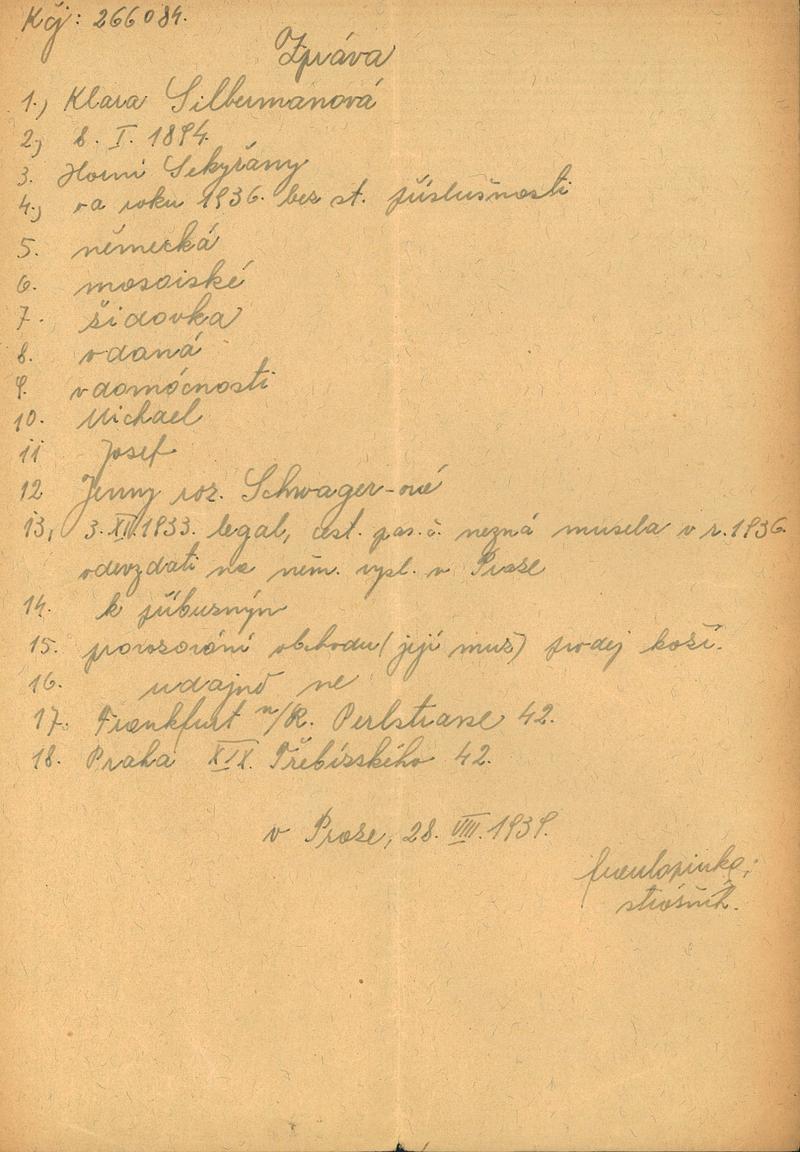 Kčj: 266084.
Zpráva
1.) Klara Silbermanová
2) 8. I. 1894.
3. Horní Sekyřány
4.) od roku 1936. bez st. příslušnosti
5. německá
6. mosaiské
7. židovka
8. vdaná
9. v domácnosti
10. Michael
11 Josef
12 Jenny roz. Schwager-ová
13, 3. XII. 1933. legal, cest. pas. č. nezná musela v r. 1936.
odevzdati na něm. vysl. v Praze
14. k příbuzným
15. provozování obchodu (její muž) prodej koží.
16. udajně ne
17. Frankfurt n/R. Perlstrasse 42.
18. Praha XIX. Třebízského 42.
v Praze, 28. VIII. 1939.
strážník.